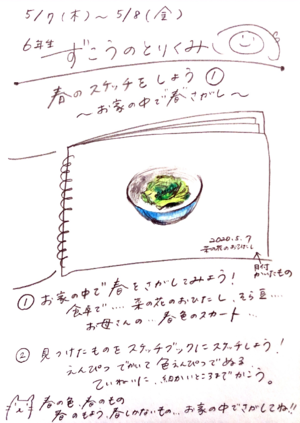 5/7(木)～5/8(金)
6年生 ずこうのとりくみ
春のスケッチをしよう①
～お家の中で春さがし～
2020.5.7
菜の花のおひたし
日付
かいたもの
① お家の中で春をさがしてみよう!
食卓で…. 菜の花のおひたし、そら豆….
お母さんの… 春色のスカート…
② 見つけたものをスケッチブックにスケッチしよう!
えんぴつでかいて色えんぴつでぬる
ていねいに、細かいところまでかこう。
春の色、春のもの
春のもよう、春しかないもの…お家の中でさがしてね!!